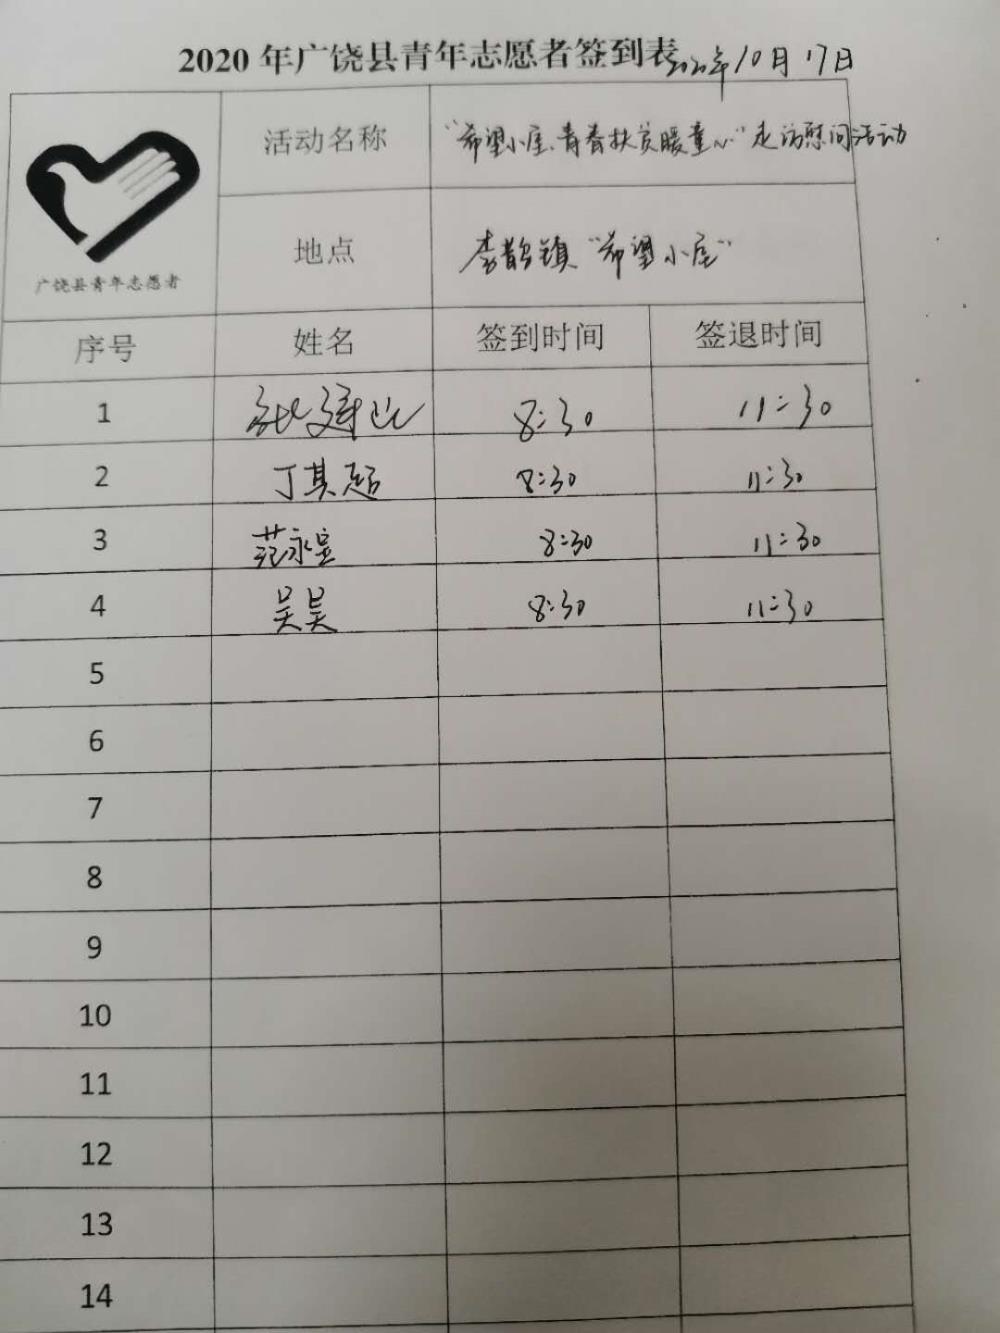 2020年广饶县青年志愿者签到表 2020年10月17日
活动名称 “希望小屋、青春扶贫暖童心”走访慰问活动
广饶县青年志愿者
地点 李鹊镇“希望小屋”
序号 姓名 签到时间 签退时间
1 8:30 11:30
2 丁其超 8:30 11:30
3 范永昱 8:30 11:30
4 吴昊 8:30 11:30
5
6
7
8
9
10
11
12
13
14